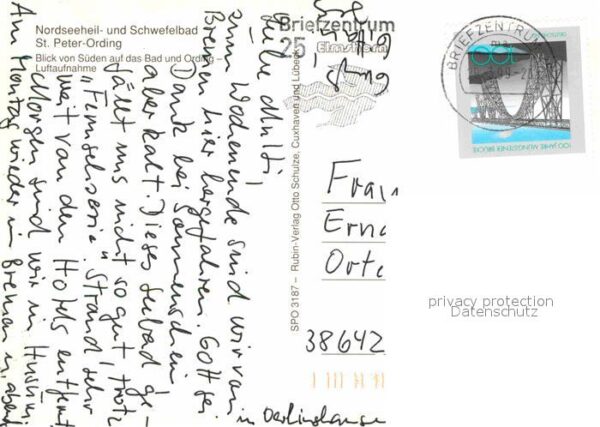 Nordseeheil- und Schwefelbad
St. Peter-Ording
Blick von Süden auf das Bad und Ording –
Luftaufnahme
Mutti,
zum Wochenende sind wir von
Bremen hier hergefahren. Gott sei
Dank bei Sonnenschein
aber kalt. Dieses Seebad ge-
fällt uns nicht so gut, trotz
"Fernsehserie". Strand sehr
weit von den Hotels entfernt
Morgen sind wir in Husum,
Am Montag wieder in Bremen
in Oerlinghausen
SPO 3187 – Rubin-Verlag Otto Schulze, Cuxhaven und Lübeck
Briefzentrum
25
Elmshorn
BRIEFZENTRUM
100
100 JAHRE MÜNGSTENER BRÜCKE
Frau
Erna
Orte
38642
privacy protection
Datenschutz